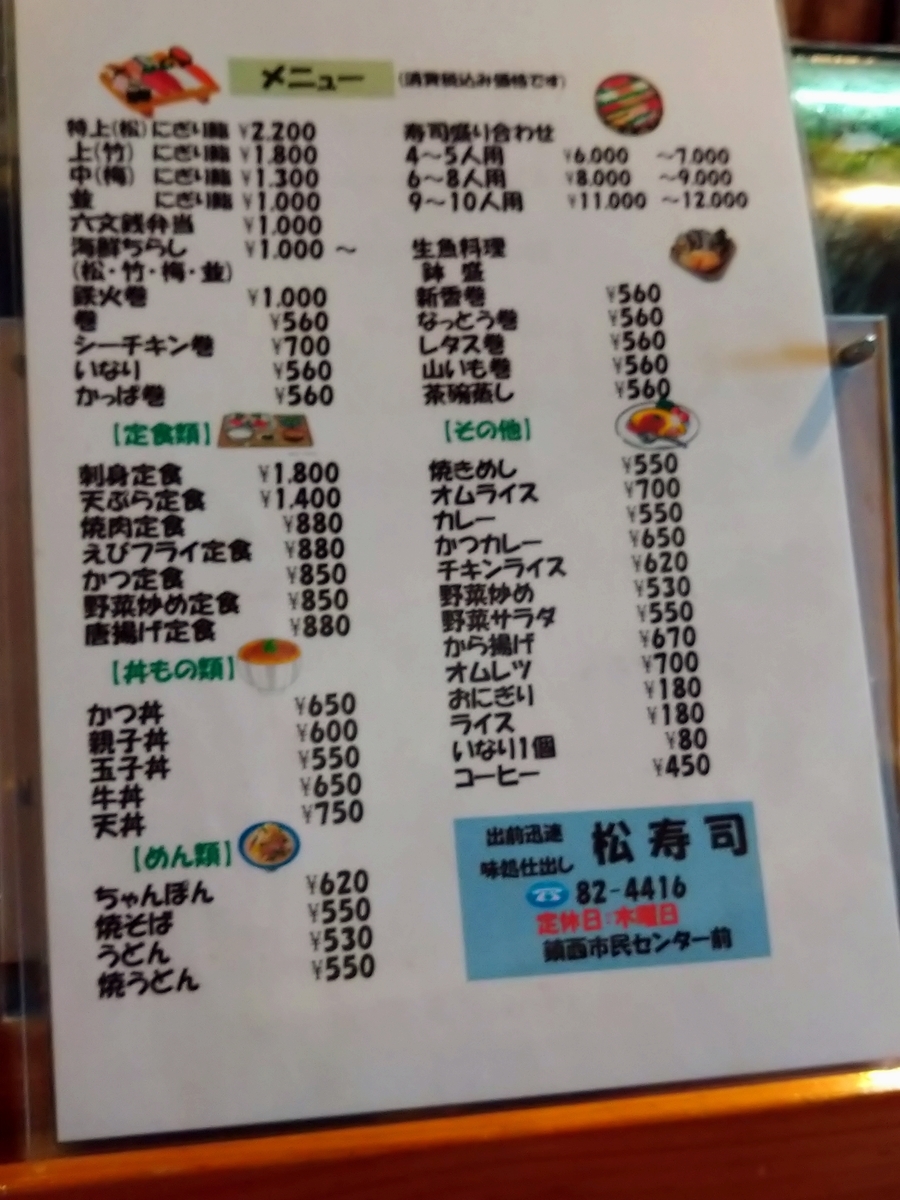 メニュー (消費税込み価格です)
特上(松)にぎり鮨 ¥2,200
上(竹) にぎり鮨 ¥1,800
中(梅) にぎり鮨 ¥1,300
並 にぎり鮨 ¥1,000
六文銭弁当 ¥1,000
海鮮ちらし ¥1,000 ～
(松・竹・梅・並)
鉄火巻 ¥1,000
巻 ¥560
シーチキン巻 ¥700
いなり ¥560
かっぱ巻 ¥560
【定食類】
刺身定食 ¥1,800
天ぷら定食 ¥1,400
焼肉定食 ¥880
えびフライ定食 ¥880
かつ定食 ¥850
野菜炒め定食 ¥850
唐揚げ定食 ¥880
【丼もの類】
かつ丼 ¥650
親子丼 ¥600
玉子丼 ¥550
牛丼 ¥650
天丼 ¥750
【めん類】
ちゃんぽん ¥620
焼そば ¥550
うどん ¥530
焼うどん ¥550
寿司盛り合わせ
4～5人用 ¥6,000 ～7,000
6～8人用 ¥8,000 ～9,000
9～10人用 ¥11,000 ～12,000
生魚料理
鉢 盛
新香巻 ¥560
なっとう巻 ¥560
レタス巻 ¥560
山いも巻 ¥560
茶碗蒸し ¥560
【その他】
焼きめし ¥550
オムライス ¥700
カレー ¥550
かつカレー ¥650
チキンライス ¥620
野菜炒め ¥530
野菜サラダ ¥550
から揚げ ¥670
オムレツ ¥700
おにぎり ¥180
ライス ¥180
いなり1個 ¥80
コーヒー ¥450
出前迅速
味処仕出し
松寿司
☎82-4416
定休日:木曜日
鎮西市民センター前